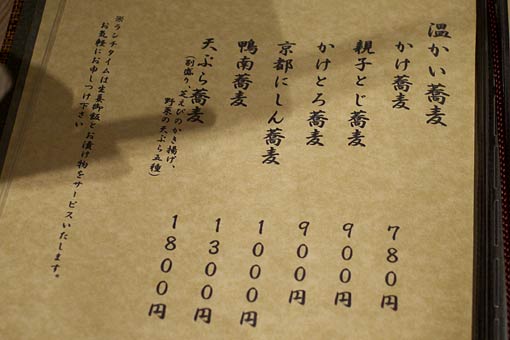 温かい蕎麦
かけ蕎麦 780円
親子とじ蕎麦 900円
かけとろ蕎麦 900円
京都にしん蕎麦 1000円
鴨南蕎麦 1300円
天ぷら蕎麦 1800円
(別盛り、芝えびのかき揚げ、
野菜の天ぷら五種)
※ランチタイムは生姜御飯とお漬け物をサービスいたします。
お気軽にお申しつけ下さい